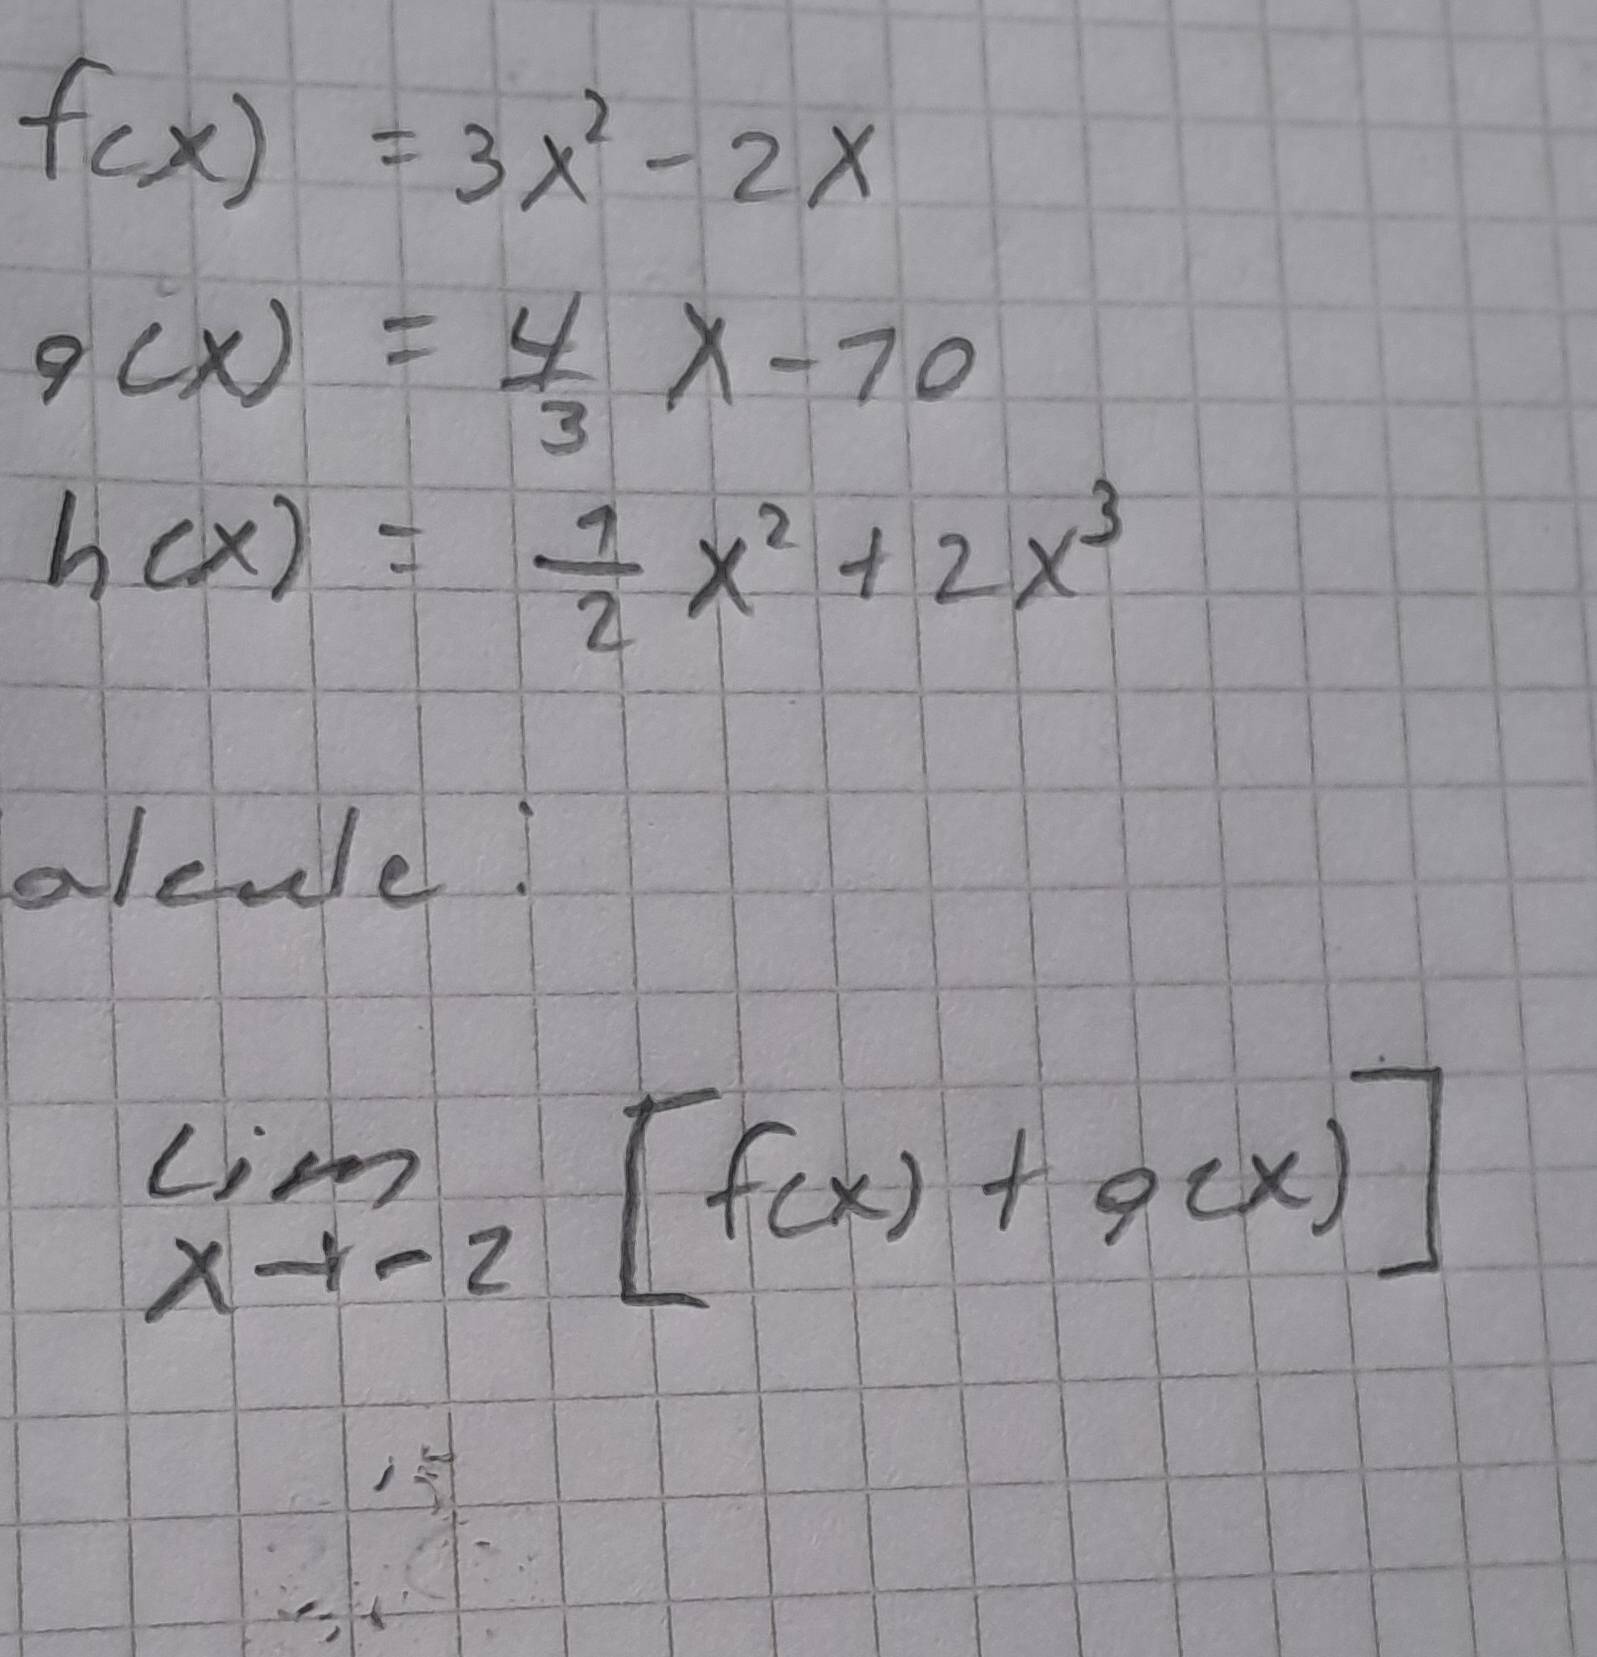 f(x) = 3x² - 2x
g(x) = 4/3 x - 10
h(x) = 1/2 x² + 2x³
alcule:
lim [f(x) + g(x)]
x→-2